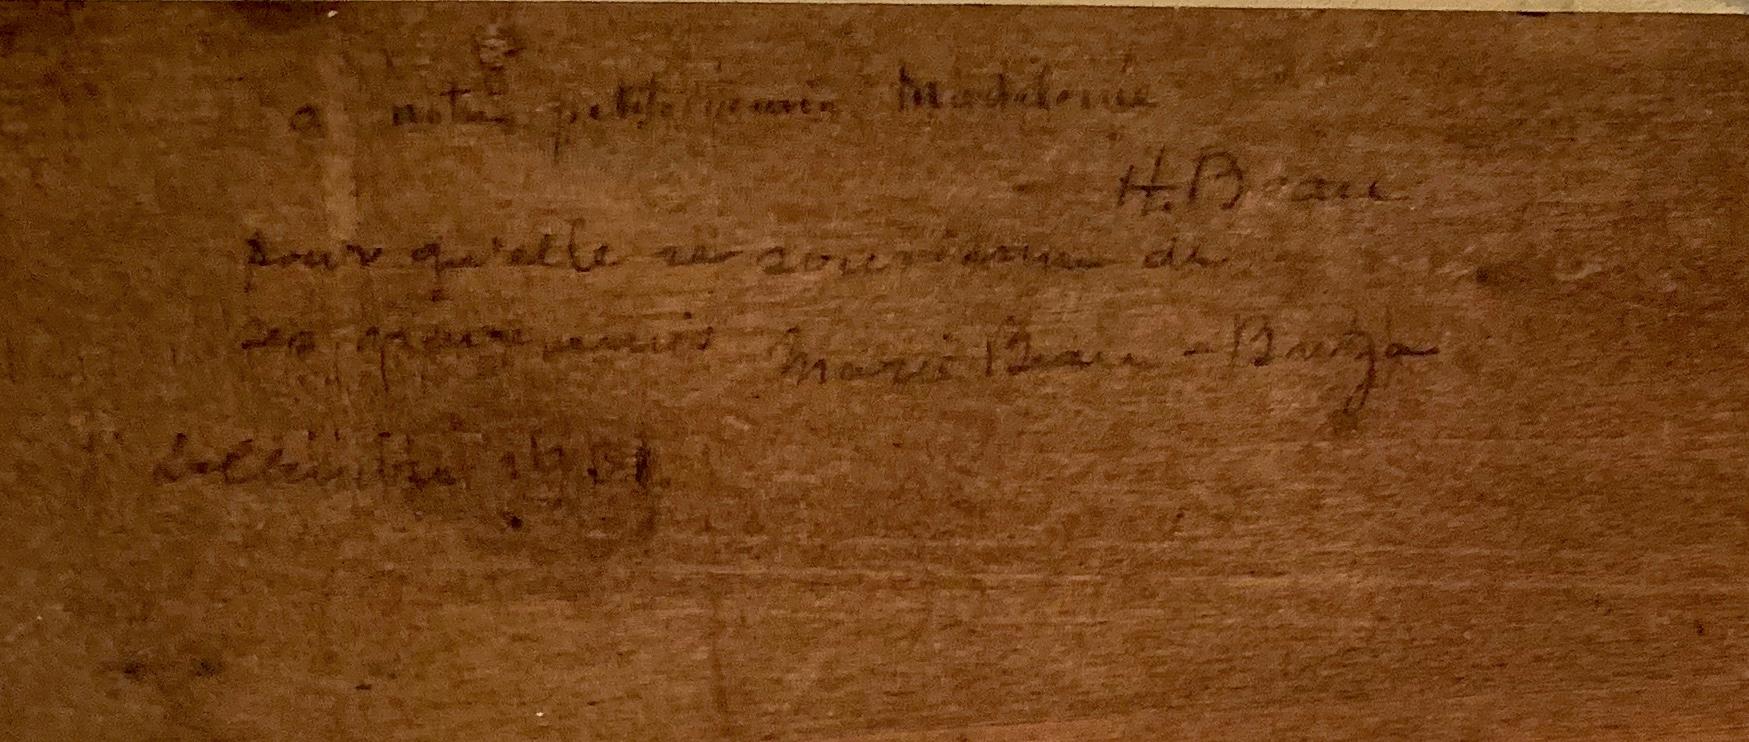 a notre petite amie Madeleine
H. Beau
pour qu'elle se souvienne de
ses grands amis Marie Beau -